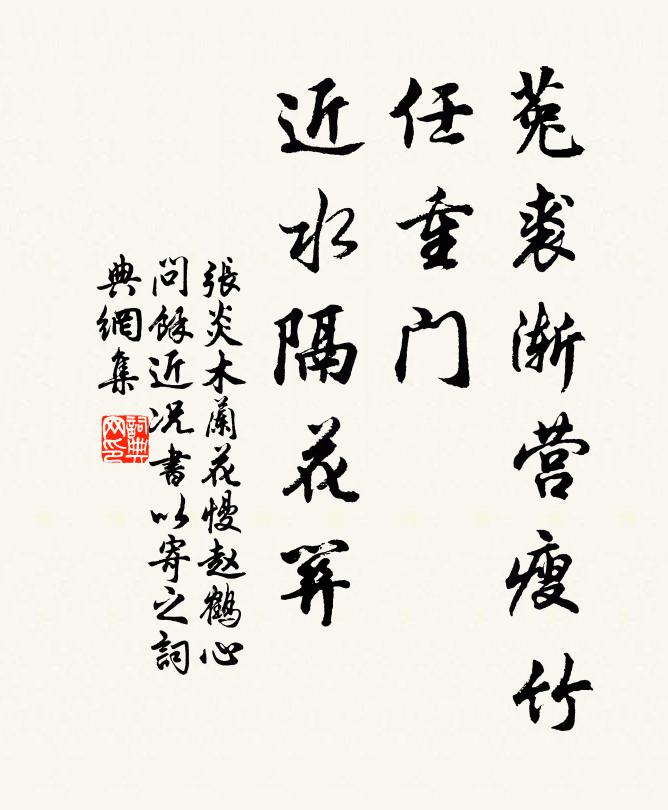 菟裘渐营瘦竹
任重门
近水隔花关
張炎木蘭花慢赵鶴心
問餘近况書以寄之詞
典網集
詞典网印